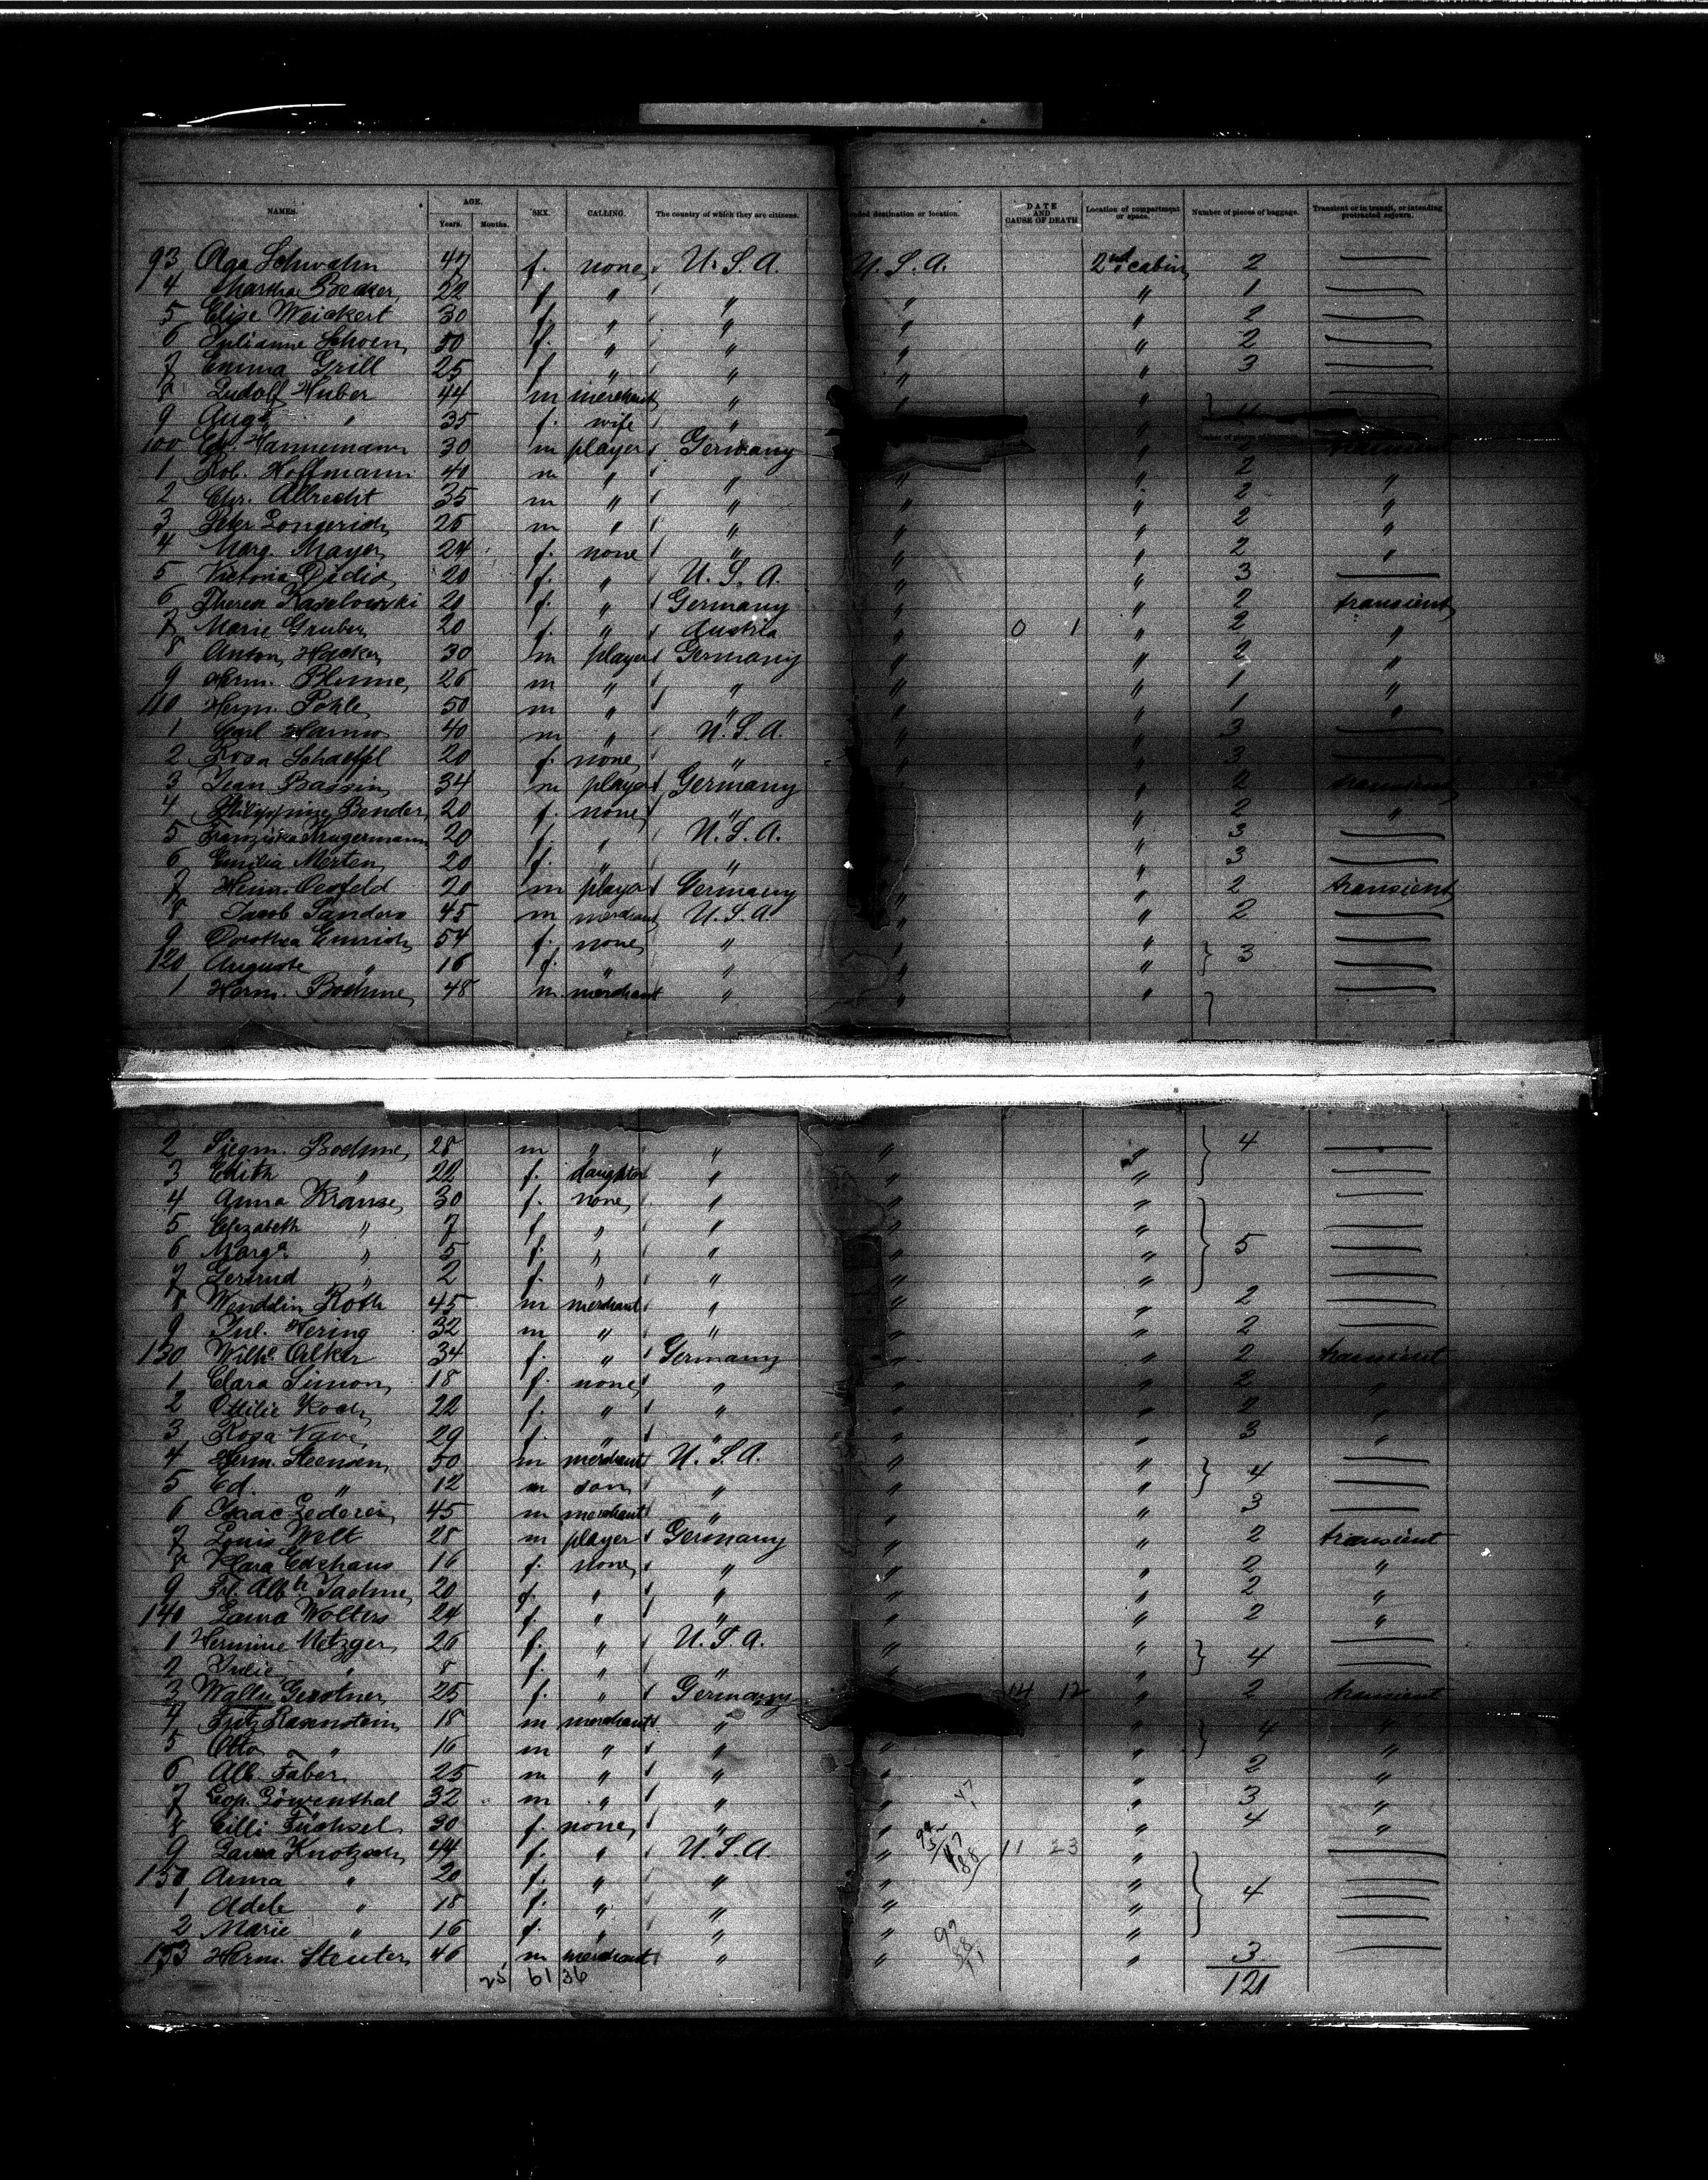 NAMES. AGE. SEX. CALLING. The country of which they are citizens. nded destination or location. DATE AND CAUSE OF DEATH Location of compartment or space. Number of pieces of baggage. Transient or in transit, or intending protracted sojourn.
Years. Months.
93 Olga Schwahn f. none U. S. A. U. S. A. 2nd cabin 2 —
4 Martha Becker 22 f " " " " 1 —
5 Elise Weickert 30 f. " " " " 2 —
6 Julianne Schoen 50 f. " " " " 2 —
7 Emma Grill 25 f " " " " 3 —
8 Rudolf Huber 44 m merchant " " " —
9 Augte " 35 f. wife " " —
100 Ed. Hannemann 30 m player Germany " 2 transient
1 Rob. Hoffmann 40 m " " " " 2 "
2 Chr. Albrecht 35 m " " " " 2 "
3 Peter Longerich 25 m " " " " 2 "
4 Marg. Mayer 24 f. none " " " 2 "
5 Victoria 20 f. " U. S. A. " " 3 —
6 Therese Kaselowski 20 f. " Germany " " 2 transient
7 Marie Gruber 20 f. " Austria " 0 1 " 2 "
8 Anton Hacker 30 m player Germany " " 2 "
9 Herm. Blume 26 m " " " " 1 "
110 Herm. Pohle 50 m " " " " 1 "
1 Carl 40 m " U. S. A. " " 3 —
2 Rosa Schaeffl 20 f. none " " " 3 —
3 Jean Bassin 34 m player Germany " " 2 transient
4 Philippine Bender 20 f. none " " " 2 "
5 Franziska 20 f. " U. S. A. " " 3 —
6 Emilia Merten 20 f. " " " " 3 —
7 Heinr. Oesfeld 20 m player Germany " " 2 transient
8 Jacob Sanders 45 m merchant U. S. A. " " 2 —
9 Dorothea Emrich 54 f. none " " " } 3 —
120 Auguste " 16 f. " " " " —
1 Herm. Boehme 48 m. merchant " " " } —
2 Siegm. Boehme 28 m " " " " } 4 —
3 Edith " 22 f. daughter " " " —
4 Anna Krause 30 f. none " " " —
5 Elizabeth " 7 f. " " " " —
6 Marga " 5 f. " " " " } 5 —
7 Gertrud " 2 f. " " " " —
8 Wenddin Roth 45 m merchant " " " 2 —
9 Jul. Hering 32 m " " " " 2 —
130 Wilhe Alker 34 f. " Germany " " 2 transient
1 Clara Simon 18 f. none " " " 2 "
2 Ottilie Koch 22 f. " " " " 2 "
3 Rosa Nave 29 f. " " " " 3 "
4 Herm. Steensen 50 m merchant U. S. A. " " } 4 —
5 Ed. " 12 m son " " " —
6 Isaac Lederer 45 m merchant " " " 3 —
7 Louis Welt 28 m player Germany " " 2 transient
8 Klara 16 f. none " " " 2 "
9 Frl. Albte 20 f. " " " " 2 "
140 Laura Wolters 24 f. " " " " 2 "
1 Hermine Metzger 26 f. " U. S. A. " " } 4 —
2 Julie " 8 f. " " " " —
3 Wally Gerstner 25 f. " Germany 14 12 " 2 transient
4 Fritz Rosenstein 18 m merchant " " } 4 "
5 Otto " 16 m " " " " "
6 Alb. Faber 25 m " " " " 2 "
7 Leop. Löwenthal 32 m " " " " 3 "
8 Cilli Füchsel 30 f. none " " " 4 "
9 Laura 44 f. " U. S. A. " 11 23 " —
150 Anna " 20 f. " " " " } 4 —
1 Adele " 18 f. " " " " —
2 Marie " 16 f. " " " " —
153 Herm. Steuter 46 m merchant " " " 3 —
25 61 36 121